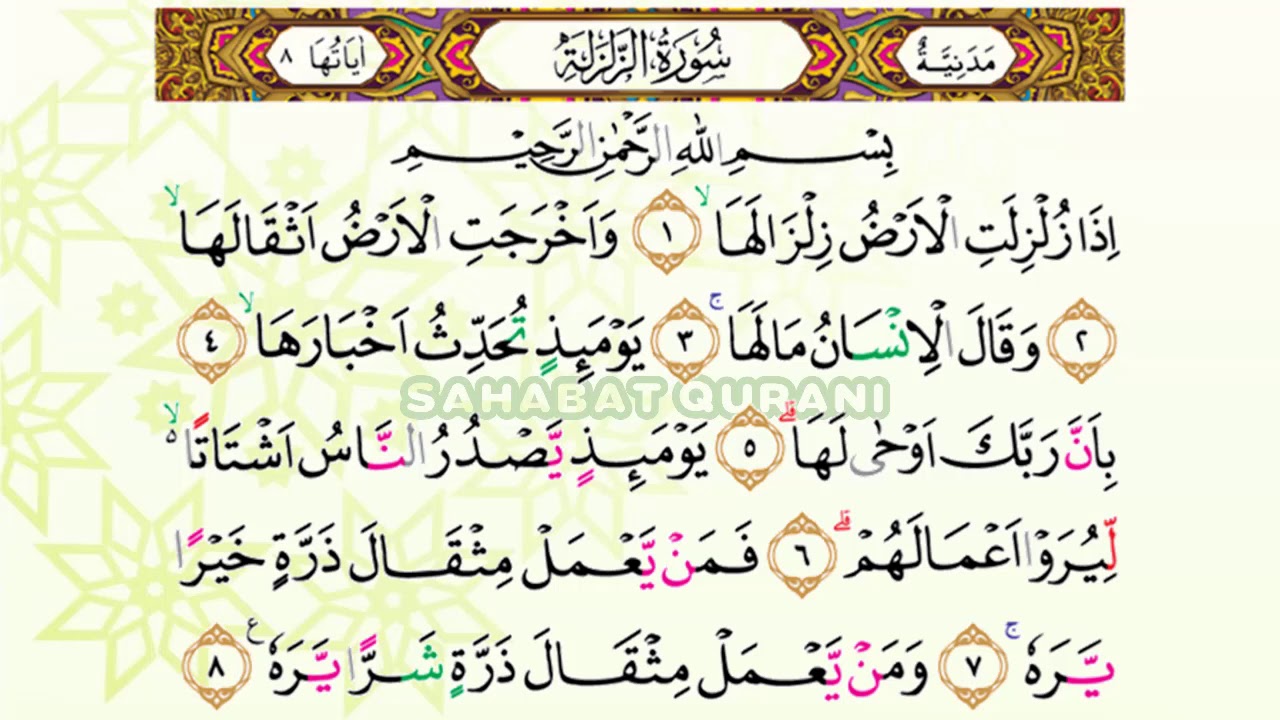 مَدَنِيَّةٌ سُوْرَةُ الزَّلْزَلَةِ اٰيَاتُهَا ٨
بِسْمِ اللهِ الرَّحْمٰنِ الرَّحِيْمِ
اِذَا زُلْزِلَتِ الْاَرْضُ زِلْزَالَهَاۙ ١ وَاَخْرَجَتِ الْاَرْضُ اَثْقَالَهَاۙ
٢ وَقَالَ الْاِنْسَانُ مَا لَهَاۚ ٣ يَوْمَئِذٍ تُحَدِّثُ اَخْبَارَهَاۙ ٤
SAHABAT QURANI
بِاَنَّ رَبَّكَ اَوْحٰى لَهَاۗ ٥ يَوْمَئِذٍ يَّصْدُرُ النَّاسُ اَشْتَاتًا ەۙ
لِّيُرَوْا اَعْمَالَهُمْۗ ٦ فَمَنْ يَّعْمَلْ مِثْقَالَ ذَرَّةٍ خَيْرًا
يَّرَهٗۚ ٧ وَمَنْ يَّعْمَلْ مِثْقَالَ ذَرَّةٍ شَرًّا يَّرَهٗ ࣖ ٨